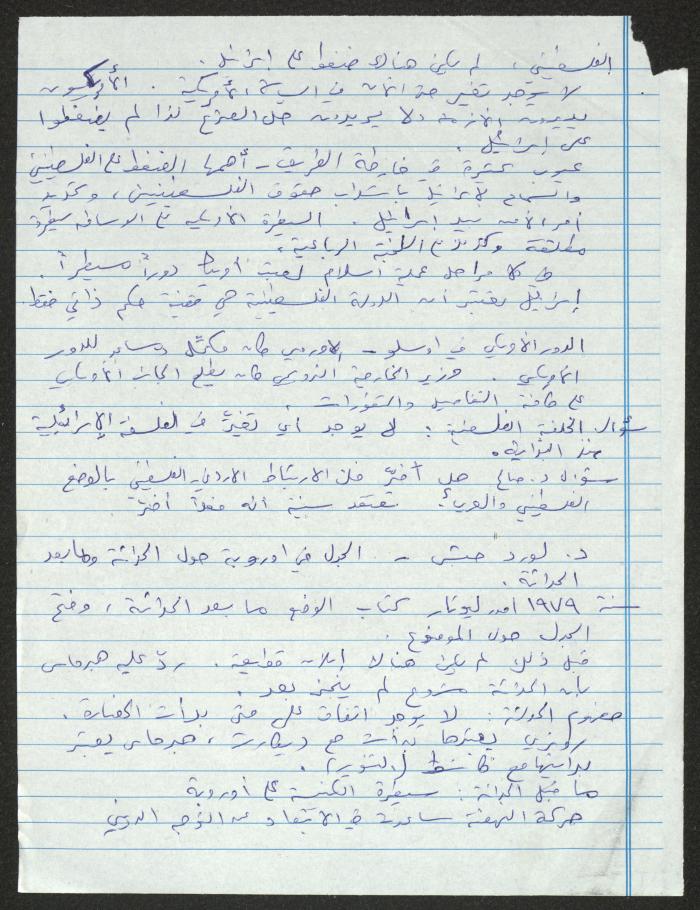 الفلسطيني، لم يكن هنالك ضغط على إسرائيل.
لا يوجد تغيير حتى الآن في السياسة الأمريكية. الأمريكيون
يديرون الأزمة ولا يريدون حل الصراع لذا لم يضغطوا
على إسرائيل.
عيوب كثيرة في خارطة الطريق - أهمها الضغط على الفلسطينيين
والسماح لإسرائيل باستلاب حقوق الفلسطينيين، وتحديد
أمر الأمن بيد إسرائيل. السيطرة الأمريكية على الوساطة سيطرة
مطلقة وكذلك على اللجنة الرباعية.
في كل مراحل عملية السلام لعبت أوروبا دوراً مسيطراً.
إسرائيل تعتبر أن الدولة الفلسطينية هي قضية حكم ذاتي فقط
الدور الأوروبي في أوسلو - الأوروبي كان مكمّل ومساعد للدور
الأمريكي. وزير الخارجية النرويجي كان يطلع الجانب الأمريكي
على كافة التفاصيل والتطورات.
سؤال الفلسفية: لا يوجد أي تغيّر في الفلسفة الإسرائيلية
منذ البداية.
سؤال د. صالح هل أضرّ فك الارتباط الأردني الفلسطيني بالوضع
الفلسطيني والعربي؟ تعتقد أنه فعلاً أضرّ
د. لورد حبش - الجدل في أوروبا حول الحداثة وما بعد
الحداثة.
سنة ١٩٧٩ أصدر ليوتار كتاب الوضع ما بعد الحداثة، وفتح
الجدل حول الموضوع.
قبل ذلك لم يكن هنالك إعلان قطيعة. ردّ عليه هبرماس
بأن الحداثة مشروع لم ينجز بعد.
مفهوم الحداثة: لا يوجد اتفاق على متى بدأت الحضارة.
يعتبرها بدأت مع ديكارت، هبرماس يعتبر
بدايتها مع كانط (التنوير).
ما قبل الحداثة: سيطرة الكنيسة على أوروبا
حركة النهضة ساعدت في الابتعاد عن الديني